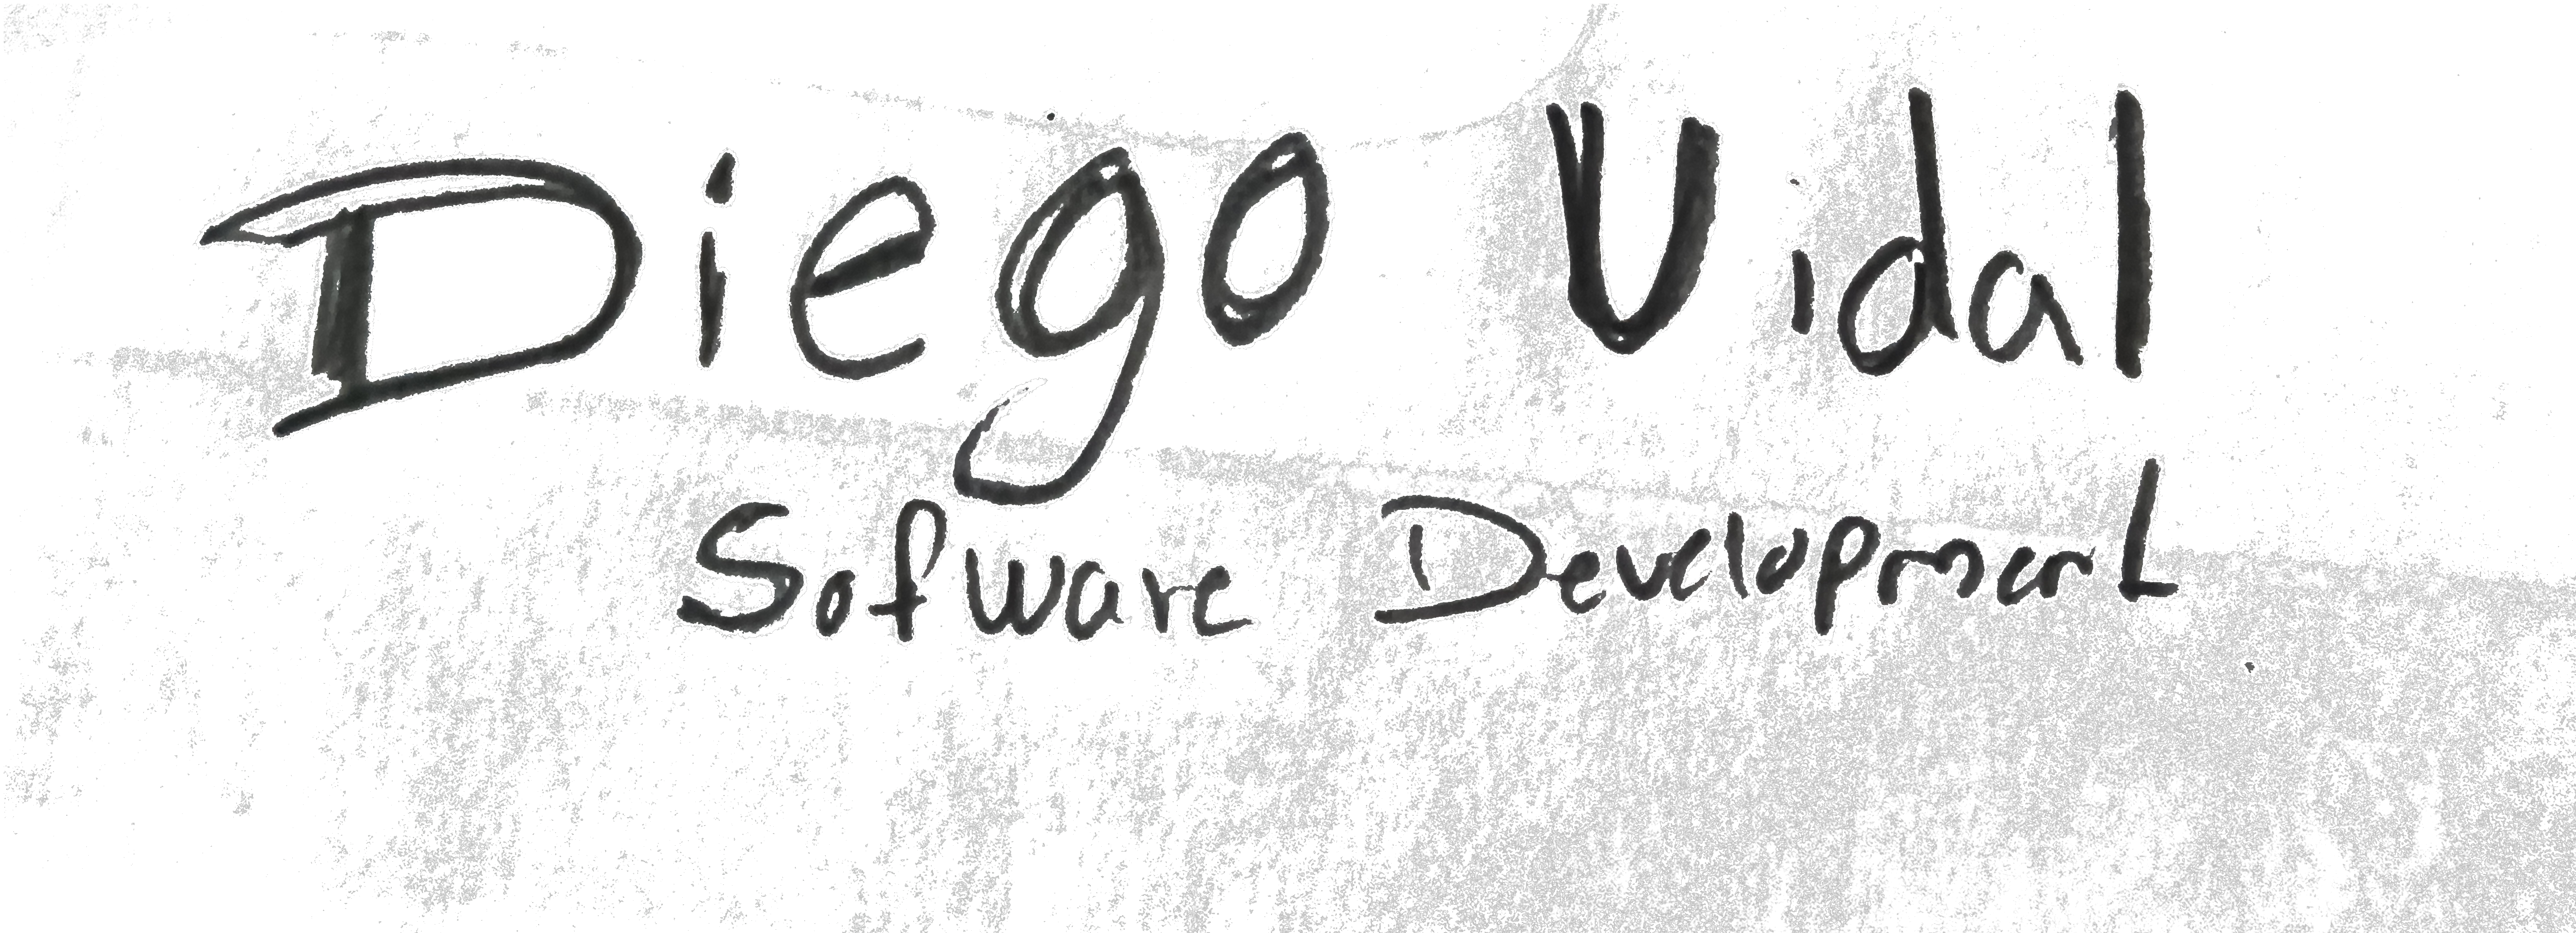 Diego Vidal
Sofware Development